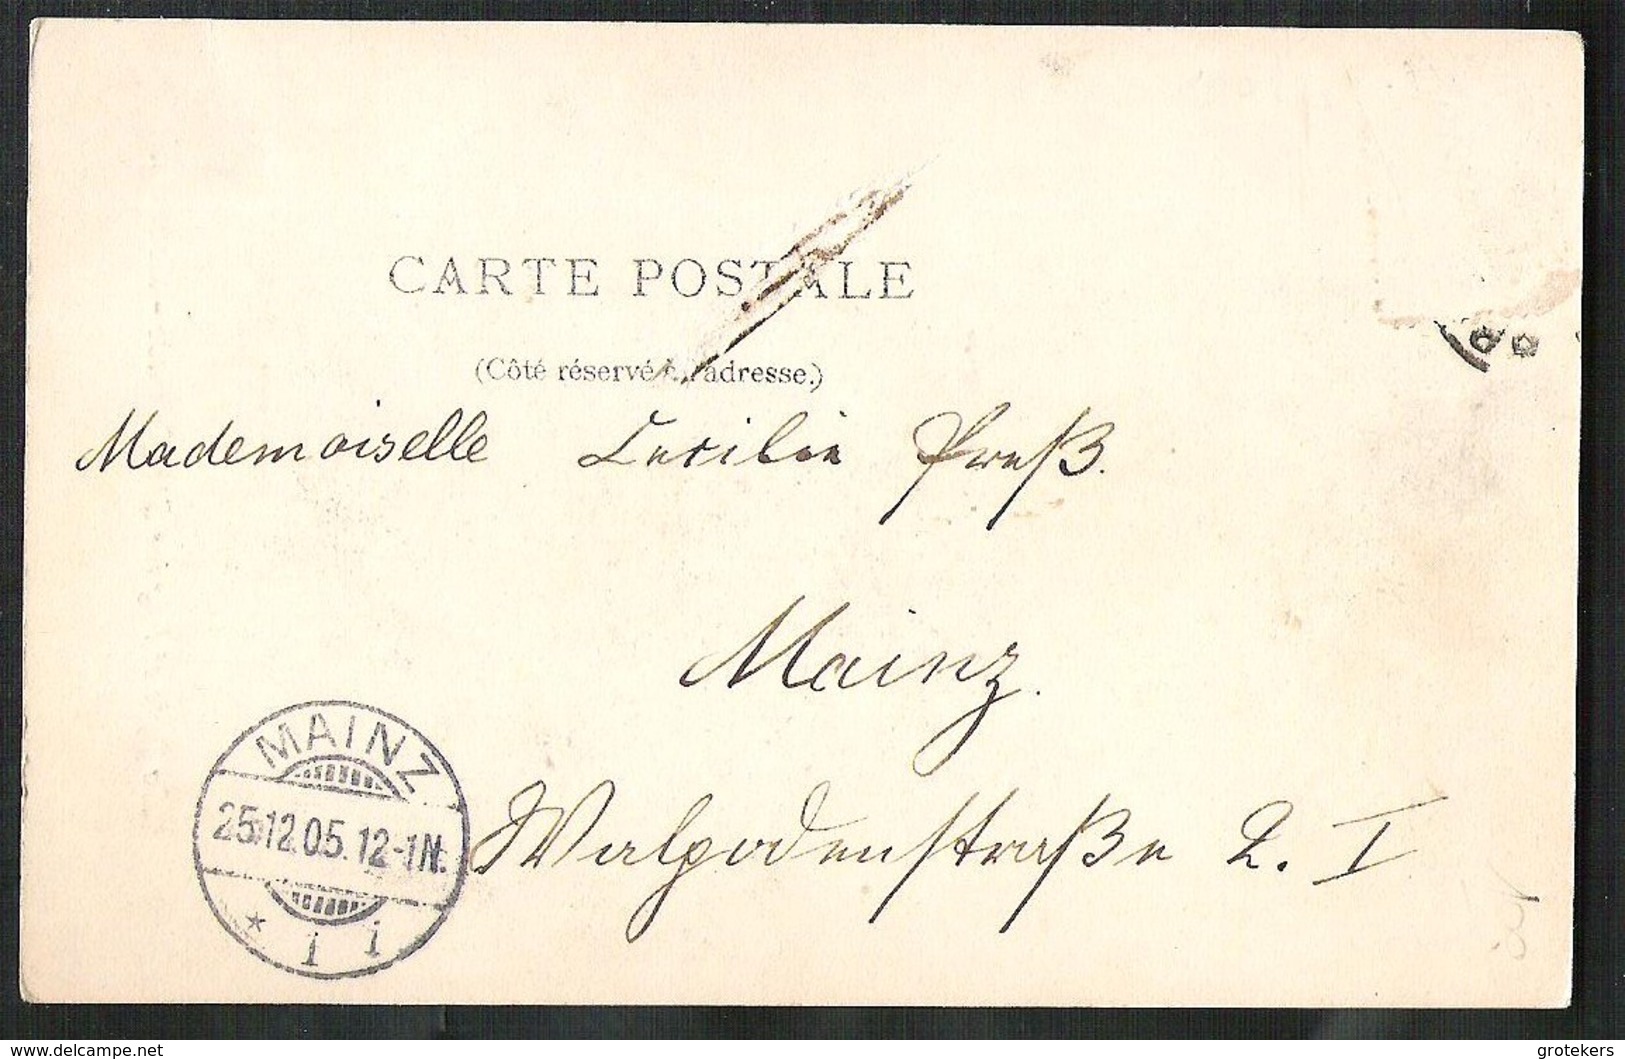 CARTE POSTALE
(Côté réservé à l'adresse.)
Mademoiselle Cecilie Preß.
Mainz.
Walpodenstraße 2. I
MAINZ
25.12.05.12-1N.
* 1 1
delcampe.net
grotekers